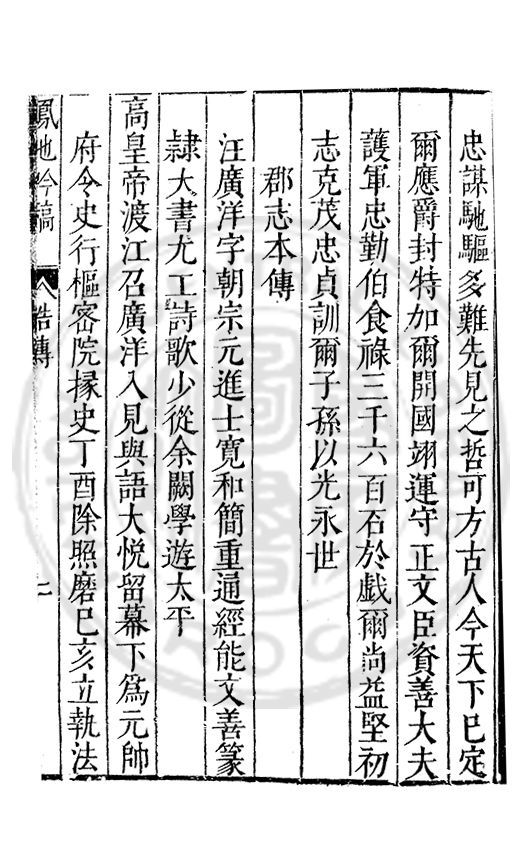 忠謀馳驅多難先見之哲可方古人今天下已定
爾應爵封特加爾開國翊運守正文臣資善大夫
護軍忠勤伯食祿三千六百石於戲爾尚益堅初
志克茂忠貞訓爾子孫以光永世
郡志本傳
汪廣洋字朝宗元進士寬和簡重通經能文善篆
隸大書尤工詩歌少從余闕學遊太平
高皇帝渡江召廣洋入見與語大悅留幕下爲元帥
府令史行樞密院掾史丁酉除照磨巳亥立執法
鳳池吟稿
誥傳
二